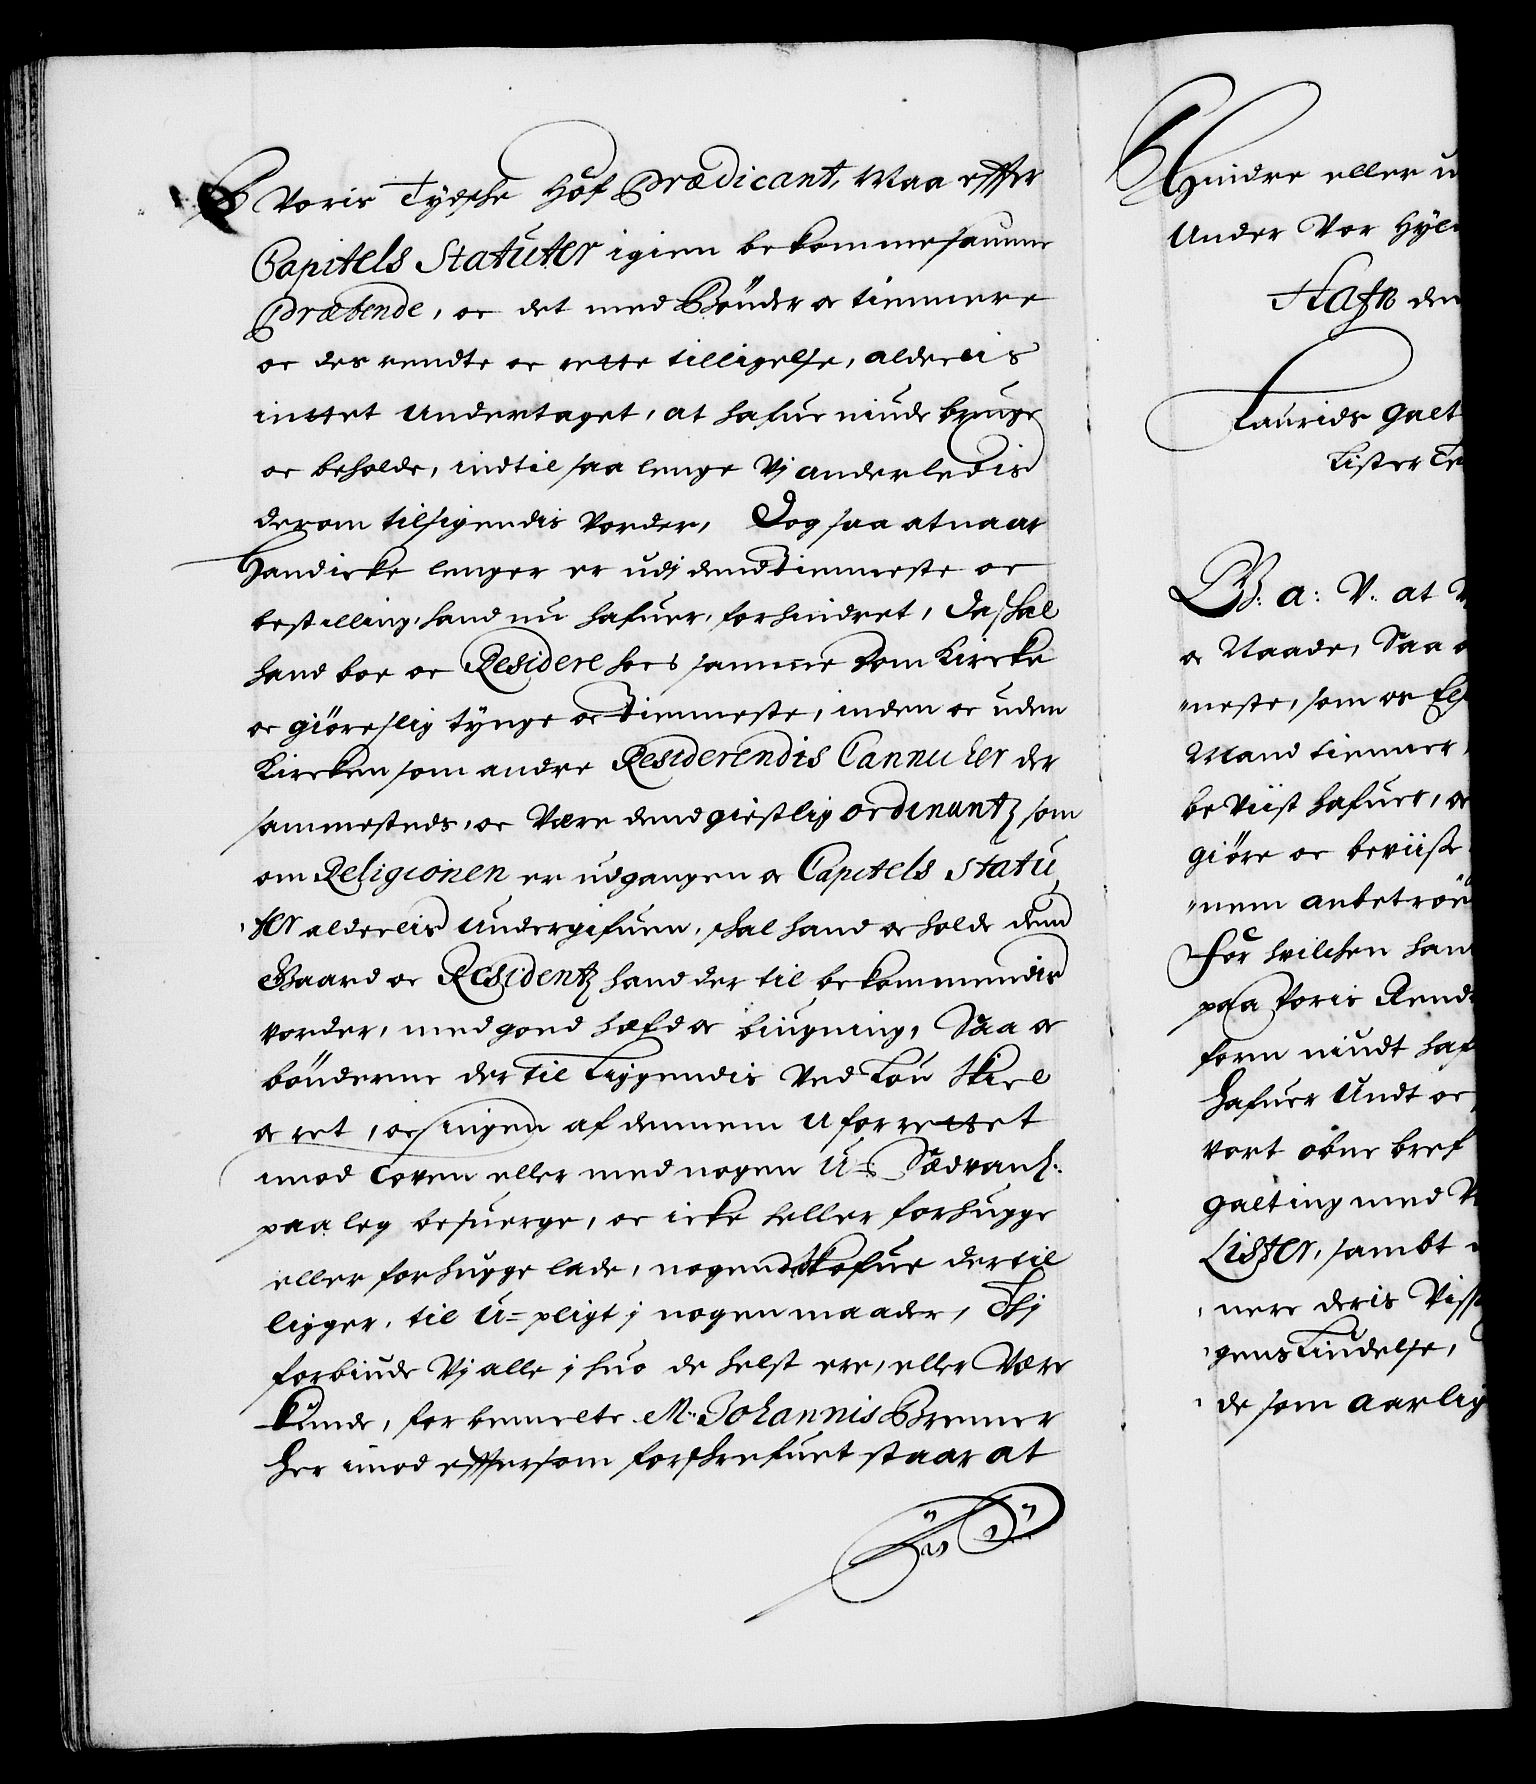 Voris Tydske Hof Prædicant, Maa effter
Capitels Statuter igien bekomme samme
Præbende, oc det med Bønder oc tiennere
oc des rendte oc rette tilligelse, aldeelis
inttet undertaget, at hafue niude bruge
oc beholde, indtil saa lenge Vj anderledis
derom tilsigendis vorder, Dog saa at naar
Hand icke lenger er udj dend tienneste oc
bestilling, hand nu hafuer, forhindret, da skal
hand boe oc Residere hoes samme Dom Kircke
oc giøre slig tynge oc tienneste, inden oc uden
Kircken som andre Residerendis Cannicker der
sammesteds, oc Være dend giestlig ordinantz som
om Religionen er udgangen oc Capitels Statu
ter aldeelis undergifuen, skal hand oc holde dend
Gaard oc Residentz hand der til bekommendis
vorder, med goed hæfd oc biugning, Saa oc
bønderne der til Liggendis ved Lou Skiel
oc ret, oc ingen af dennem uforrettet
imod Loven eller med nogen U-Sædvanl:
paaleg besuerge, oc icke heller forhugge
eller forhugge lade, nogen Skofue der til
ligger, til U=pligt j nogen maader, Thj
forbiude Vj alle j huo de helst ere, eller Være
kunde, forbemelte M: Johannis Bremer
her imod effter som forskrefuet staar at
Hindre eller u
Under Vor Hyl
Hafn den
Laurids Galt
Lister Le
G: a: V: at V
oc Naade, Saa o
neste, som os El
Mand tienner,
beviist hafuer, oc
giøre oc beviise
nem anbetroe
For hvilcken han
paa Voris Rend
form niudt haf
hafuer Undt oc
vort obne bref
Galting med V
Lister, sambt
nere deris Viss
gens Lindelse,
de som aarlig